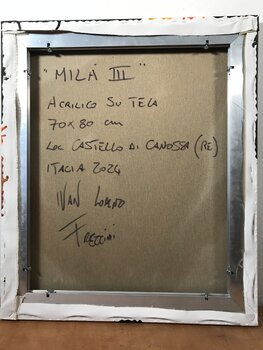 "MILÀ III"
ACRILICO SU TELA
70X80 cm
LOC CASTELLO DI CANOSSA (RE)
ITALIA 2024
IVAN LORENZO
FREZZINI